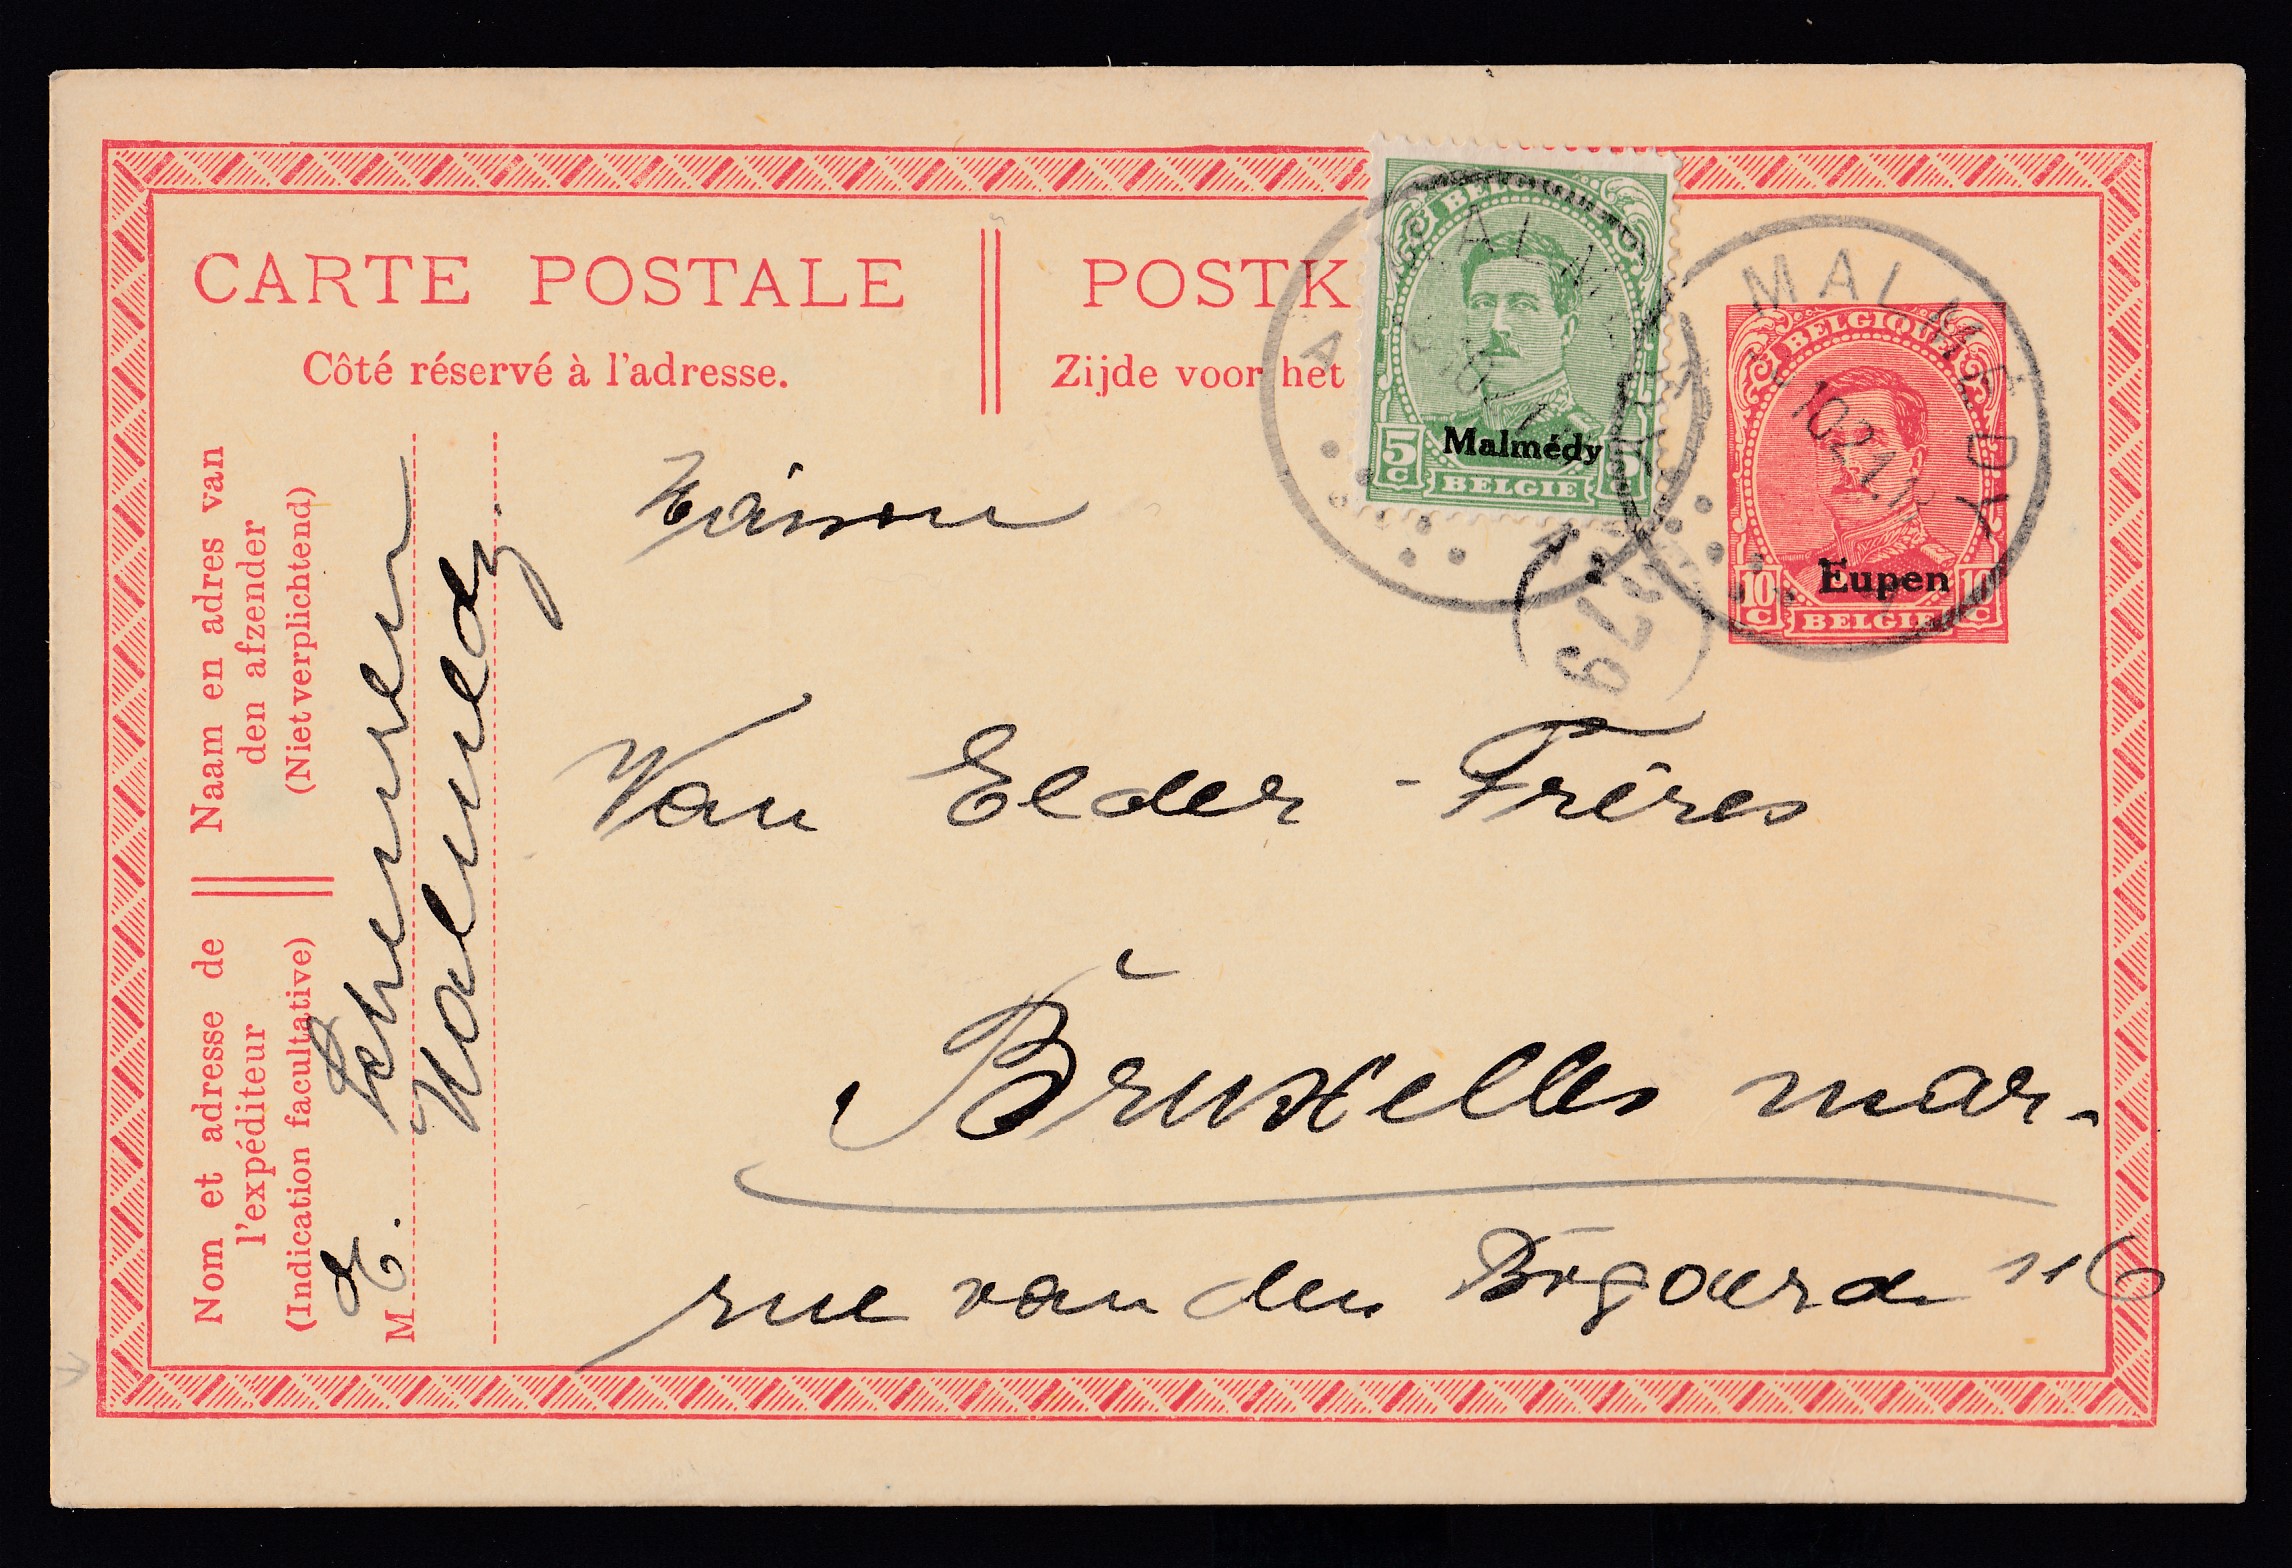 CARTE POSTALE
Côté réservé à l'adresse.
POSTK
Zijde voor het
BELGIQUE
5 c
Malmédy
BELGIE
MALMEDY
A
MALMEDY
1021
BELGIQUE
Eupen
10 c
10 c
BELGIE
279
Van Elder - Frères
Bruxelles mar-
rue van den Bogaerd 116
Naam en adres van
den afzender
(Niet verplichtend)
Nom et adresse de
l'expéditeur
(Indication facultative)
M
E.
Malmedy.